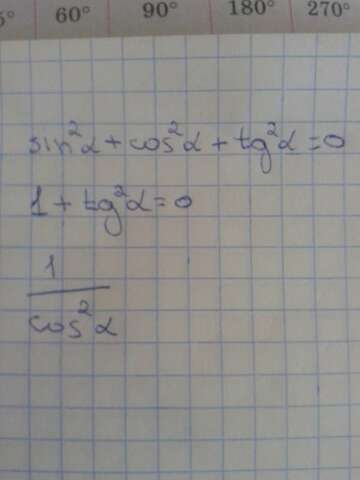 5° 60° 90° 180° 270°
sin²α + cos²α + tg²α = 0
1 + tg²α = 0
1
cos²α